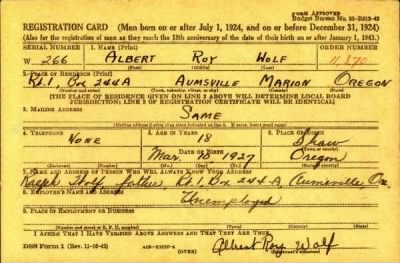 FORM APPROVED
Budget Bureau No.
REGISTRATION CARD (Men born on or after July 1, 1924, and on or before December 31, 1924)
(Also for the registration of men as they reach the 18th anniversary of the date of their birth on or after January 1, 1943.)
SERIAL NUMBER 1. NAME (Print) ORDER NUMBER
W 266 ALBERT ROY WOLF 11,870
(First) (Middle) (Last)
2. PLACE OF RESIDENCE (Print)
Rt. 1, Box 244A AUMSVILLE MARION OREGON
[THE PLACE OF RESIDENCE GIVEN ON LINE 2 ABOVE WILL DETERMINE LOCAL BOARD
JURISDICTION; LINE 2 OF REGISTRATION CERTIFICATE WILL BE IDENTICAL]
3. MAILING ADDRESS
SAME
4. TELEPHONE 5. AGE IN YEARS 6. PLACE OF BIRTH
NONE 18 Shaw
DATE OF BIRTH
Mar. 10, 1927 Oregon
7. NAME AND ADDRESS OF PERSON WHO WILL ALWAYS KNOW YOUR ADDRESS
Ralph Wolf, father, Rt. 1, Box 244-A, Aumsville, Ore.
8. EMPLOYER'S NAME AND ADDRESS
Unemployed
9. PLACE OF EMPLOYMENT OR BUSINESS
I AFFIRM THAT I HAVE VERIFIED ABOVE ANSWERS AND THAT THEY ARE TRUE.
DSS Form 1 (Rev. 11-16-42) (OVER) Albert Roy Wolf